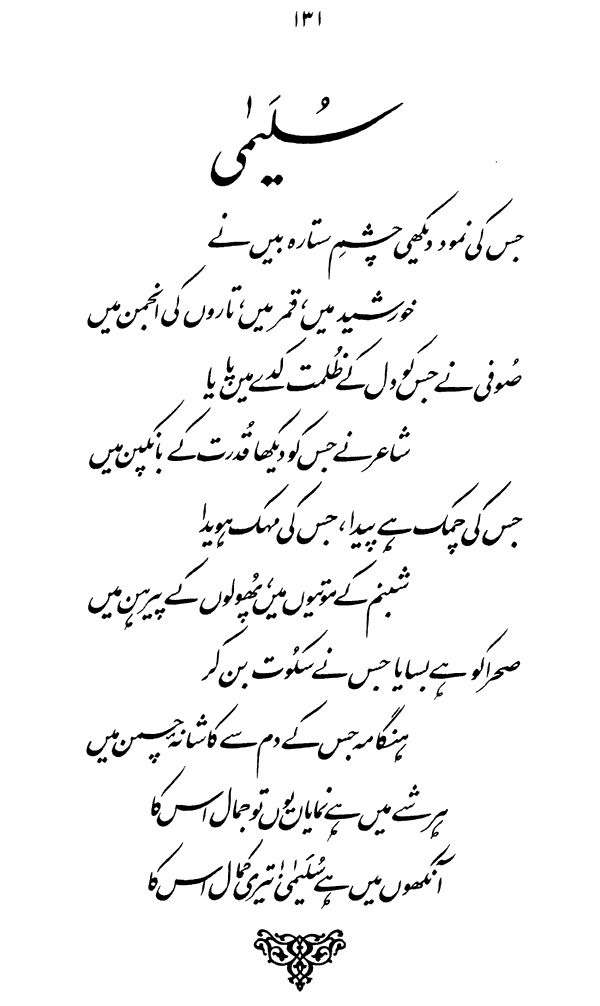 ۱۳۱
سُلَیمٰی
جس کی نمود دیکھی چشمِ ستارہ بیں نے
خورشید میں، قمر میں، تاروں کی انجمن میں
صُوفی نے جس کو دل کے ظُلمت کدے میں پایا
شاعر نے جس کو دیکھا قُدرت کے بانکپن میں
جس کی چمک ہے پیدا، جس کی مہک ہویدا
شبنم کے موتیوں میں، پھُولوں کے پیرہن میں
صحرا کو ہے بسایا جس نے سکُوت بن کر
ہنگامہ جس کے دم سے کاشانۂ چمن میں
ہر شے میں ہے نمایاں یوں تو جمال اس کا
آنکھوں میں ہے سُلَیمٰی تیری کمال اس کا